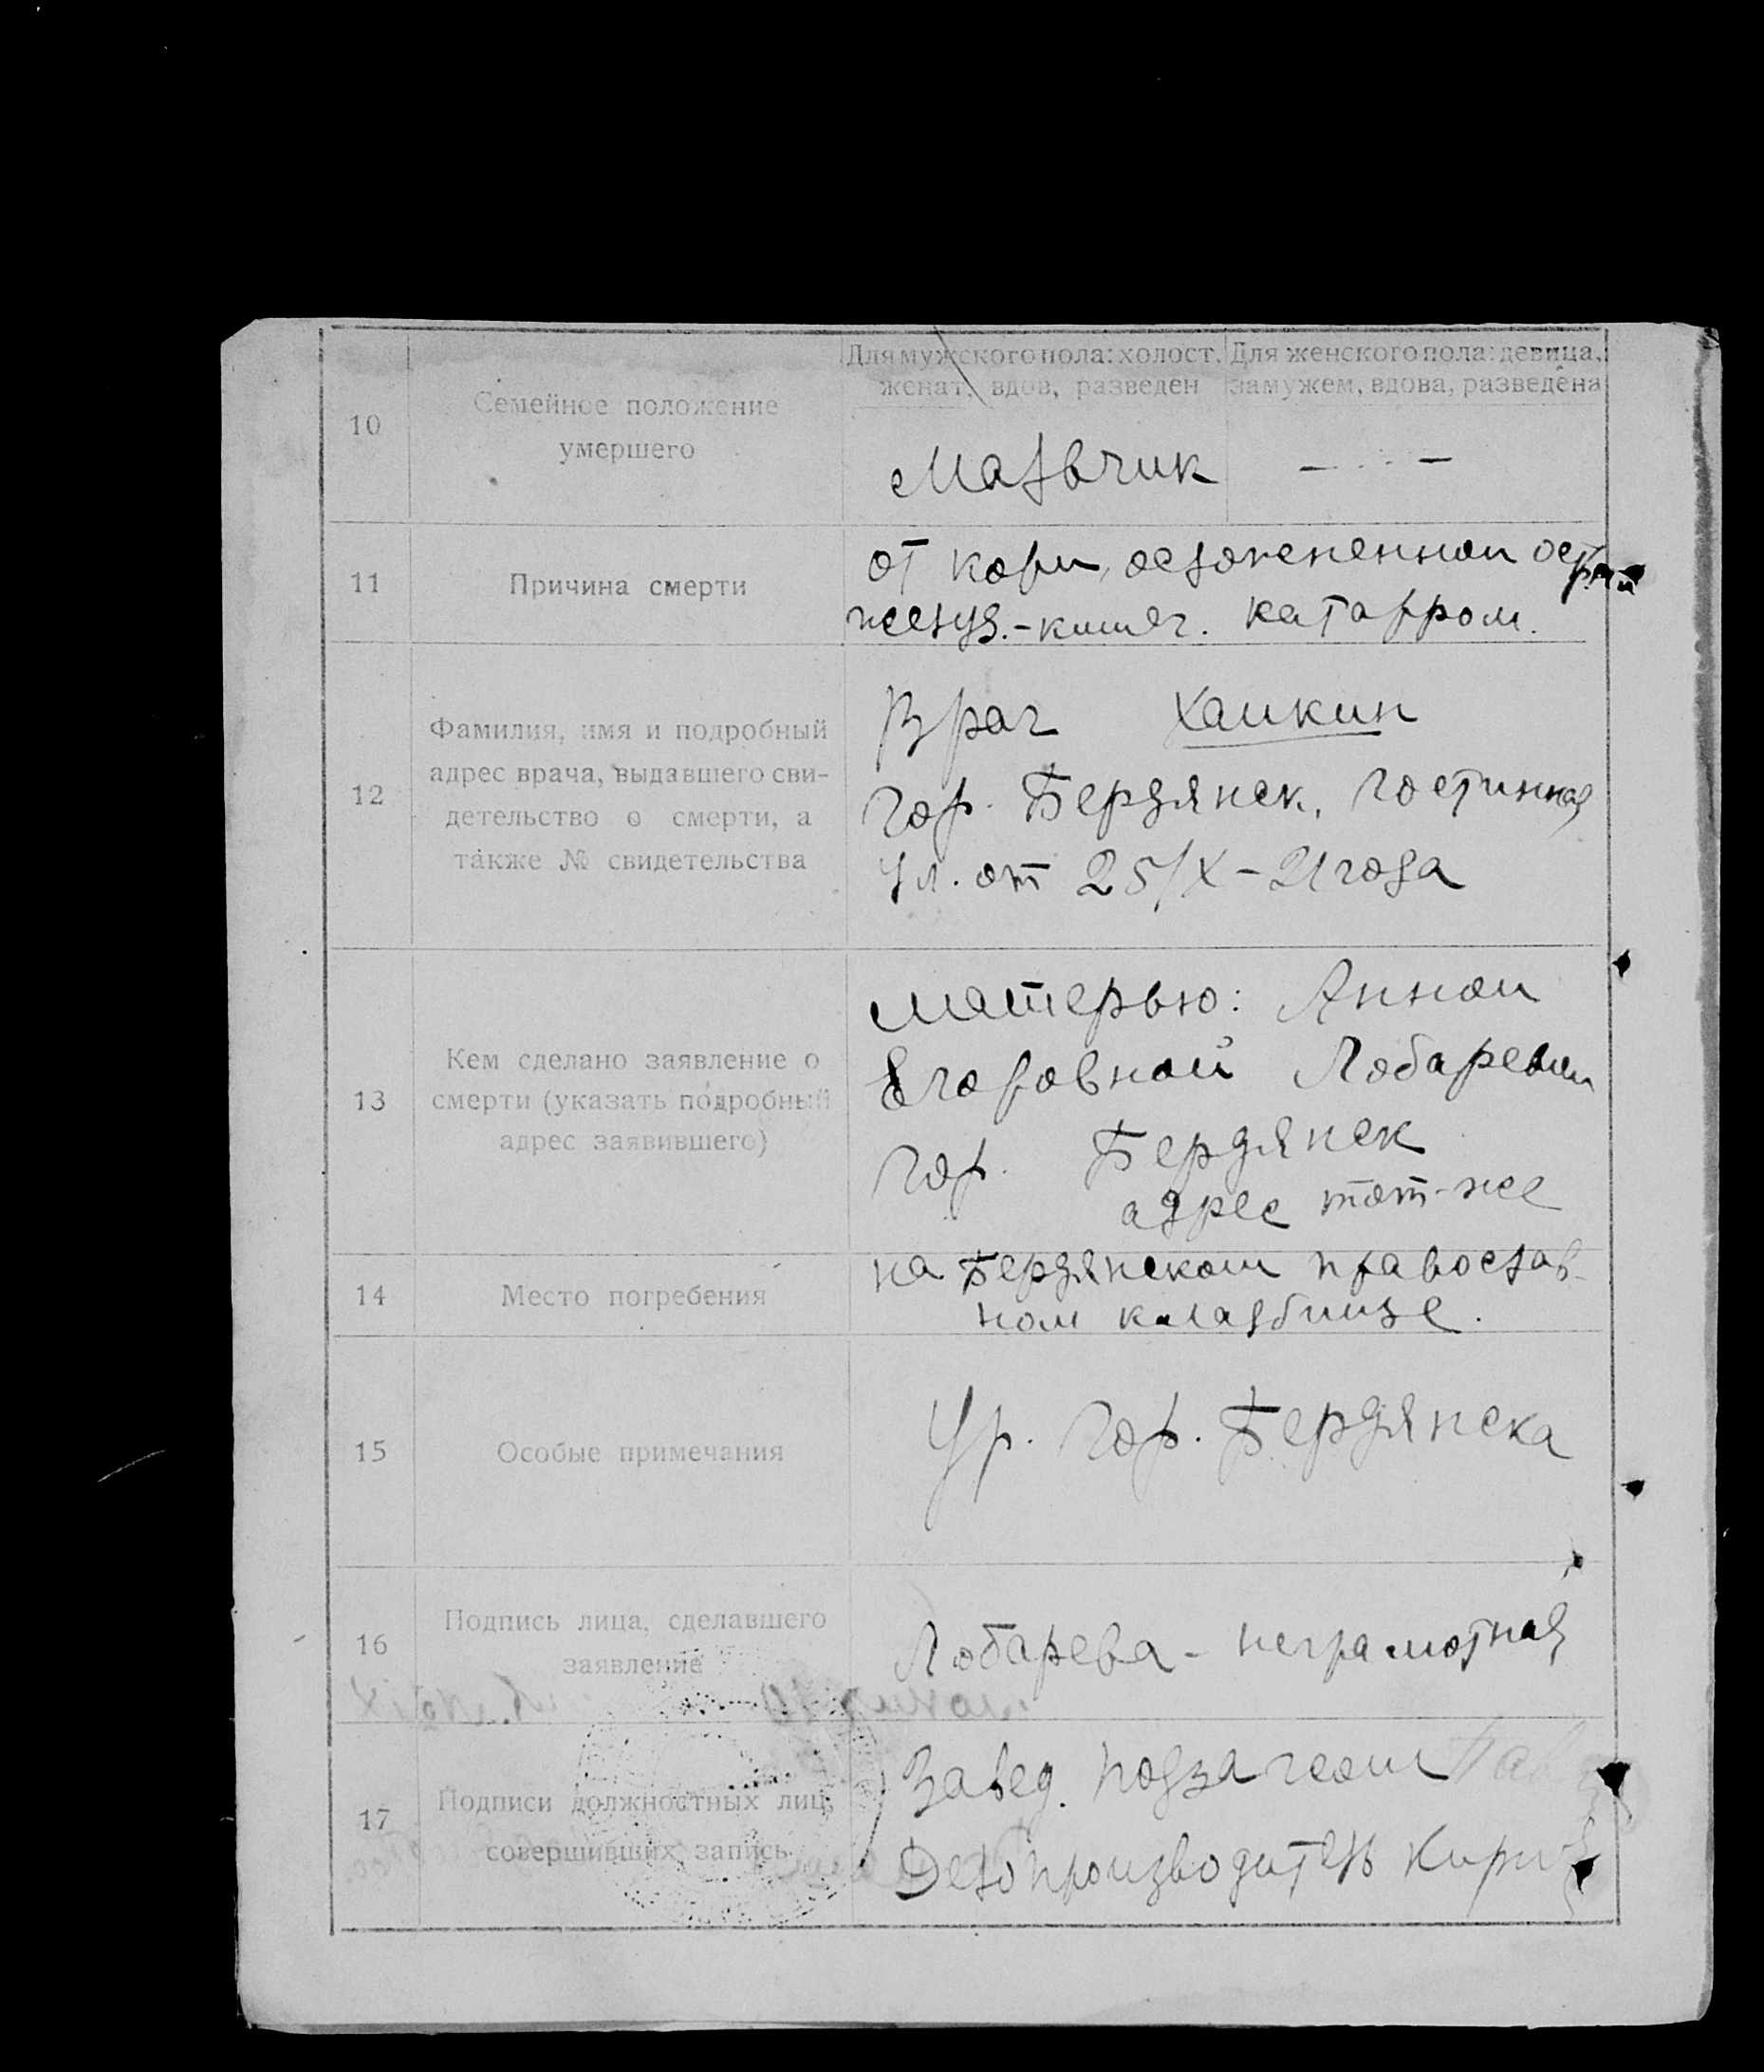 10
Семейное положение
умершего
Для мужского пола: холост,
женат, вдов, разведен
Для женского пола: девица,
замужем, вдова, разведена
Мальчик
— —
11
Причина смерти
от кори, осложненной остр.
желуд.-кишеч. катарром.
12
Фамилия, имя и подробный
адрес врача, выдавшего сви-
детельство о смерти, а
также № свидетельства
Врач Хаикин
гор. Бердянск, Гостинная
ул. от 25/X-21 года
13
Кем сделано заявление о
смерти (указать подробный
адрес заявившего)
матерью: Анной
Егоровной Лобаревой
гор. Бердянск
адрес тот-же
14
Место погребения
на Бердянском православ-
ном кладбище.
15
Особые примечания
Ур. гор. Бердянска
16
Подпись лица, сделавшего
заявление
Лобарева - неграмотная
17
Подписи должностных лиц,
совершивших запись
Завед. подзагсом
Делопроизводитель